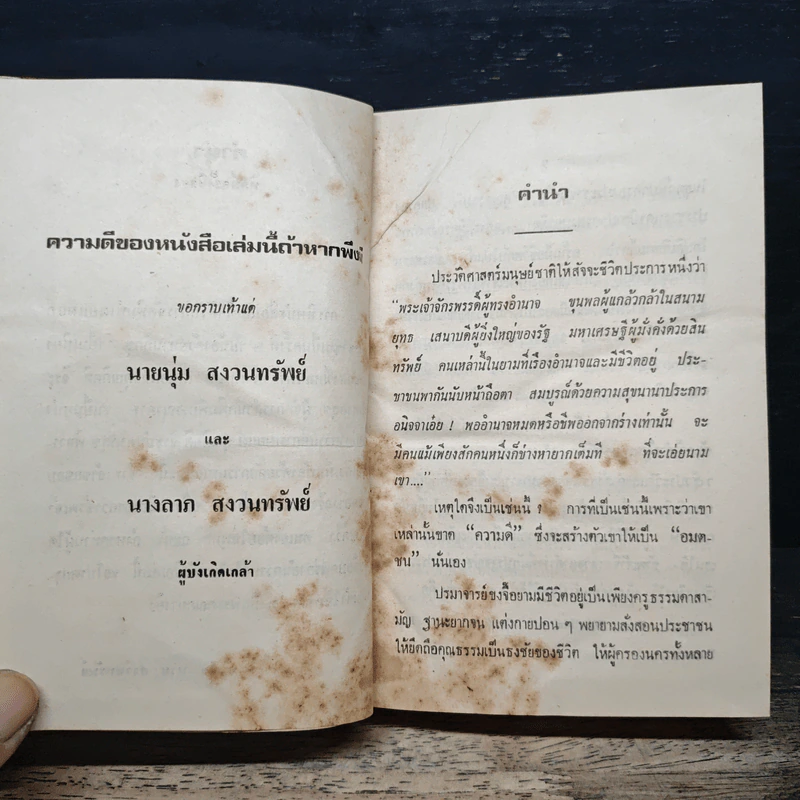 ความดีของหนังสือเล่มนี้ถ้าหากพึง
ขอกราบเท้าแด่
นายนุ่ม สงวนทรัพย์
และ
นางลาภ สงวนทรัพย์
ผู้บังเกิดเกล้า
คำนำ
ประวัติศาสตร์มนุษย์ชาติให้สัจจะชีวิตประการหนึ่งว่า
"พระเจ้าจักรพรรดิ์ผู้ทรงอำนาจ ขุนพลผู้แกล้วกล้าในสนาม
ยุทธ เสนาบดีผู้ยิ่งใหญ่ของรัฐ มหาเศรษฐีผู้มั่งคั่งด้วยสิน
ทรัพย์ คนเหล่านี้ในยามที่เรืองอำนาจและมีชีวิตอยู่ ประ-
ชาชนพากันนับหน้าถือตา สมบูรณ์ด้วยความสุขนานาประการ
อนิจจาเอ๋ย ! พออำนาจหมดหรือชีพออกจากร่างเท่านั้น จะ
มีคนแม้เพียงสักคนหนึ่งก็ช่างหายากเต็มที ที่จะเอ่ยนาม
เขา...."
เหตุใดจึงเป็นเช่นนี้ ? การที่เป็นเช่นนี้เพราะว่าเขา
เหล่านั้นขาด "ความดี" ซึ่งจะสร้างตัวเขาให้เป็น "อมต-
ชน" นั่นเอง
ปรมาจารย์ขงจื๊อยามมีชีวิตอยู่เป็นเพียงครูธรรมดาสา-
มัญ ฐานะยากจน แต่งกายปอน ๆ พยายามสั่งสอนประชาชน
ให้ยึดถือคุณธรรมเป็นธงชัยของชีวิต ให้ผู้ครองนครทั้งหลาย